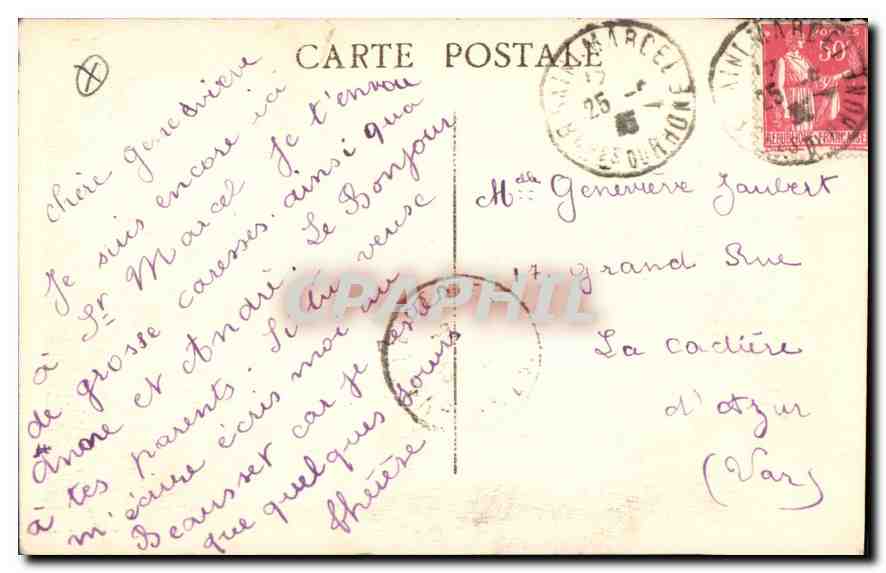 CARTE POSTALE
chère Geneviève
Je suis encore ici
à St Marcel Je t'envoie
de grosse caresses. ainsi qua
Anne et André. Le Bonjour
à tes parents. Si tu veuse
m'écrire écris moi au
Beausset car je
que quelques jours
thérèse
SAINT MARCEL
25
BES DU RHONE
50c
REPUBLIQUE FRANCAISE
Mdlle Geneviève Jaubert
17 Grand Rue
La Cadière
d'Azur
(Var)
CPAPHIL